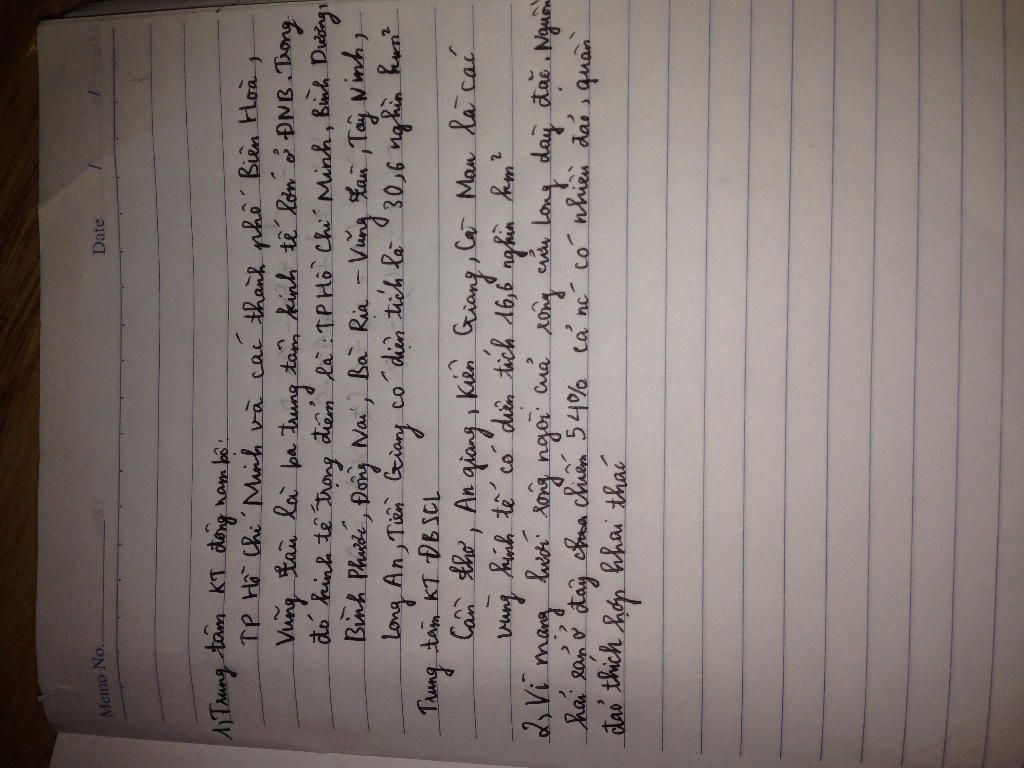 Memo No.
Date / /
1) Trung tâm KT đông nam bộ:
TP Hồ Chí Minh và các thành phố Biên Hoà,
Vũng tàu là ba trung tâm kinh tế lớn ở ĐNB. Trong
đó kinh tế trọng điểm là: TP Hồ Chí Minh, Bình Dương,
Bình Phước, Đồng Nai, Bà Rịa - Vũng tàu, Tây Ninh,
Long An, Tiền Giang có diện tích là 30,6 nghìn km²
Trung tâm KT ĐBSCL
Cần thơ, An giang, Kiên Giang, Cà Mau là các
vùng kinh tế có diện tích 16,6 nghìn km²
2, Vì mạng lưới sông ngòi của sông cửu Long dày đặc. Nguồn
hải sản ở đây chiếm 54% cả nc có nhiều đảo, quần
đảo thích hợp khai thác